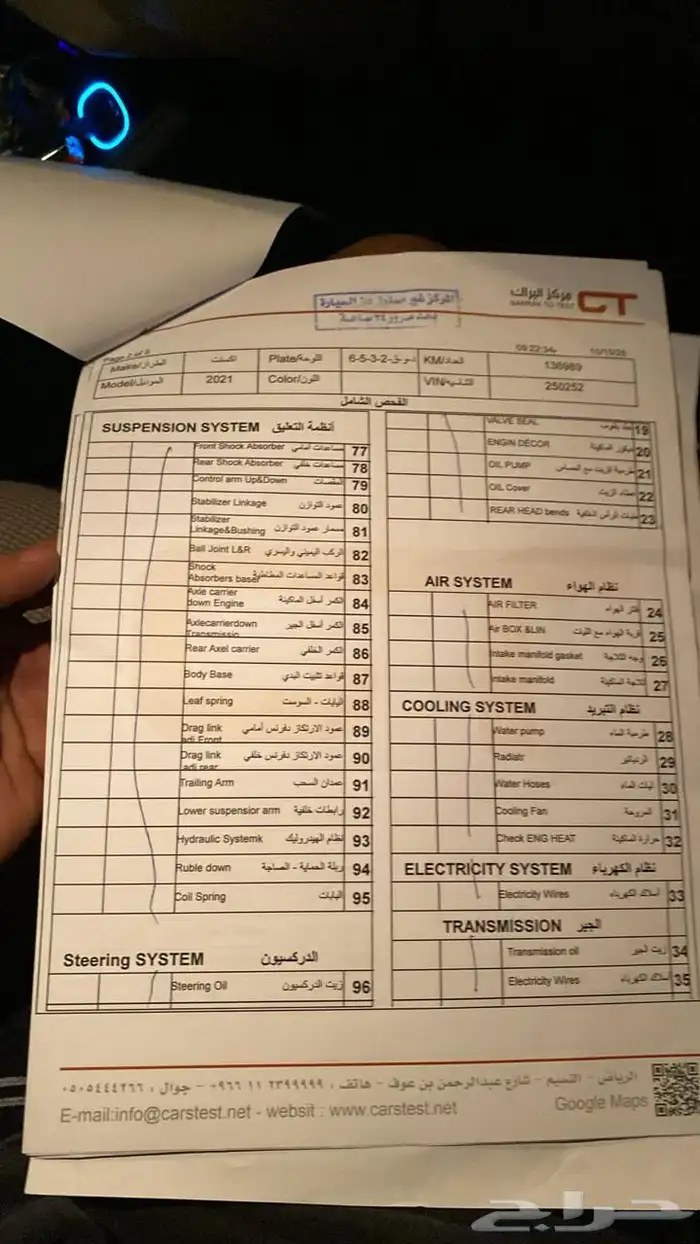 المركز غير مسئول عن السيارة
بعد مرور ٢٤ ساعة
مركز البراك
CT
09:22:34
10/10/25
Page 2 of
Make/الطراز اكسنت Plate/اللوحة 6-5-3-2 KM/العداد 136989
Model/الموديل 2021 Color/اللون VIN/الشاسيه 250252
الفحص الشامل
SUSPENSION SYSTEM أنظمة التعليق
Front Shock Absorber مساعدات أمامي 77
Rear Shock Absorber مساعدات خلفي 78
Control arm Up&Down المقصات 79
Stabilizer Linkage عمود التوازن 80
Stabilizer
Linkage&Bushing مسمار عمود التوازن 81
Ball Joint L&R الركب اليميني واليسري 82
Shock
Absorbers baser قواعد المساعدات المطاطية 83
Axle carrier
down Engine الكمر أسفل الماكينة 84
Axlecarrierdown
Transmissio الكمر أسفل الجير 85
Rear Axel carrier الكمر الخلفي 86
Body Base قواعد تثبيت البدي 87
Leaf spring اليايات - السوست 88
Drag link
adj Front عمود الارتكاز دفرنس أمامي 89
Drag link
adj rear عمود الارتكاز دفرنس خلفي 90
Trailing Arm عمدان السحب 91
Lower suspensior arm رابطات خلفية 92
Hydraulic Systemk نظام الهيدروليك 93
Ruble down ربلة الحماية - الصاجة 94
Coil Spring اليايات 95
Steering SYSTEM الدركسيون
Steering Oil زيت الدركسيون 96
VALVE SEAL 19
ENGIN DECOR ديكور الماكينة 20
OIL PUMP طرمبة الزيت مع الحساس 21
OIL Cover غطاء الزيت 22
REAR HEAD bends ثنيات الرأس الخلفية 23
AIR SYSTEM نظام الهواء
AIR FILTER فلتر الهواء 24
Air BOX &LIN قربة الهواء مع الليات 25
Intake manifold gasket وجه الثلاجة 26
Intake manifold ثلاجة الماكينة 27
COOLING SYSTEM نظام التبريد
Water pump طرمبة الماء 28
Radiatr الرديتير 29
Water Hoses ليات الماء 30
Cooling Fan المروحة 31
Check ENG HEAT حرارة الماكينة 32
ELECTRICITY SYSTEM نظام الكهرباء
Electricity Wires أسلاك الكهرباء 33
TRANSMISSION الجير
Transmission oil زيت الجير 34
Electricity Wires أسلاك الكهرباء 35
الرياض - النسيم - شارع عبدالرحمن بن عوف - هاتف : ٢٣٩٩٩٩٩ ١١ ٩٦٦+ - جوال : ٠٥٠٥٤٤٤٢٦٦
E-mail:info@carstest.net - websit : www.carstest.net
Google Maps
حراج